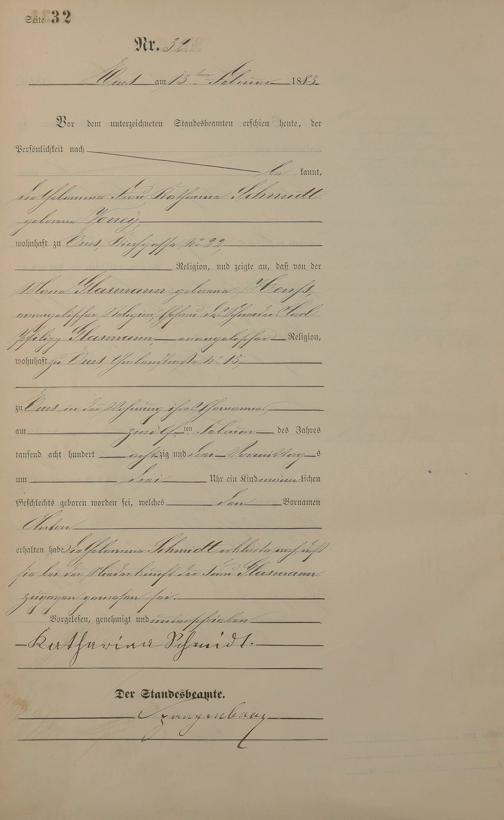 Seite 32
Nr. 32
Ems am 13ten Februar 1883
Vor dem unterzeichneten Standesbeamten erschien heute, der
Persönlichkeit nach
be kannt,
die Hebamme Frau Katharina Schmidt
geborene
wohnhaft zu Ems, Kirchgasse No 22,
Religion, und zeigte an, daß von der
Maria Glasmann geborene
evangelischer Religion, Ehefrau des
Philipp Glasmann evangelischer Religion,
wohnhaft zu Ems No 15
zu Ems in der Wohnung ihres Ehemannes
am zwölften Februar des Jahres
tausend acht hundert achtzig und drei Vormittags
um drei Uhr ein Kind männlichen
Geschlechts geboren worden sei, welches den Vornamen
Anton
erhalten habe. Die Hebamme Schmidt erklärte noch, daß
sie bei der Niederkunft der Frau Glasmann
zugegen gewesen sei.
Vorgelesen, genehmigt und unterschrieben
Katharina Schmidt.
Der Standesbeamte.